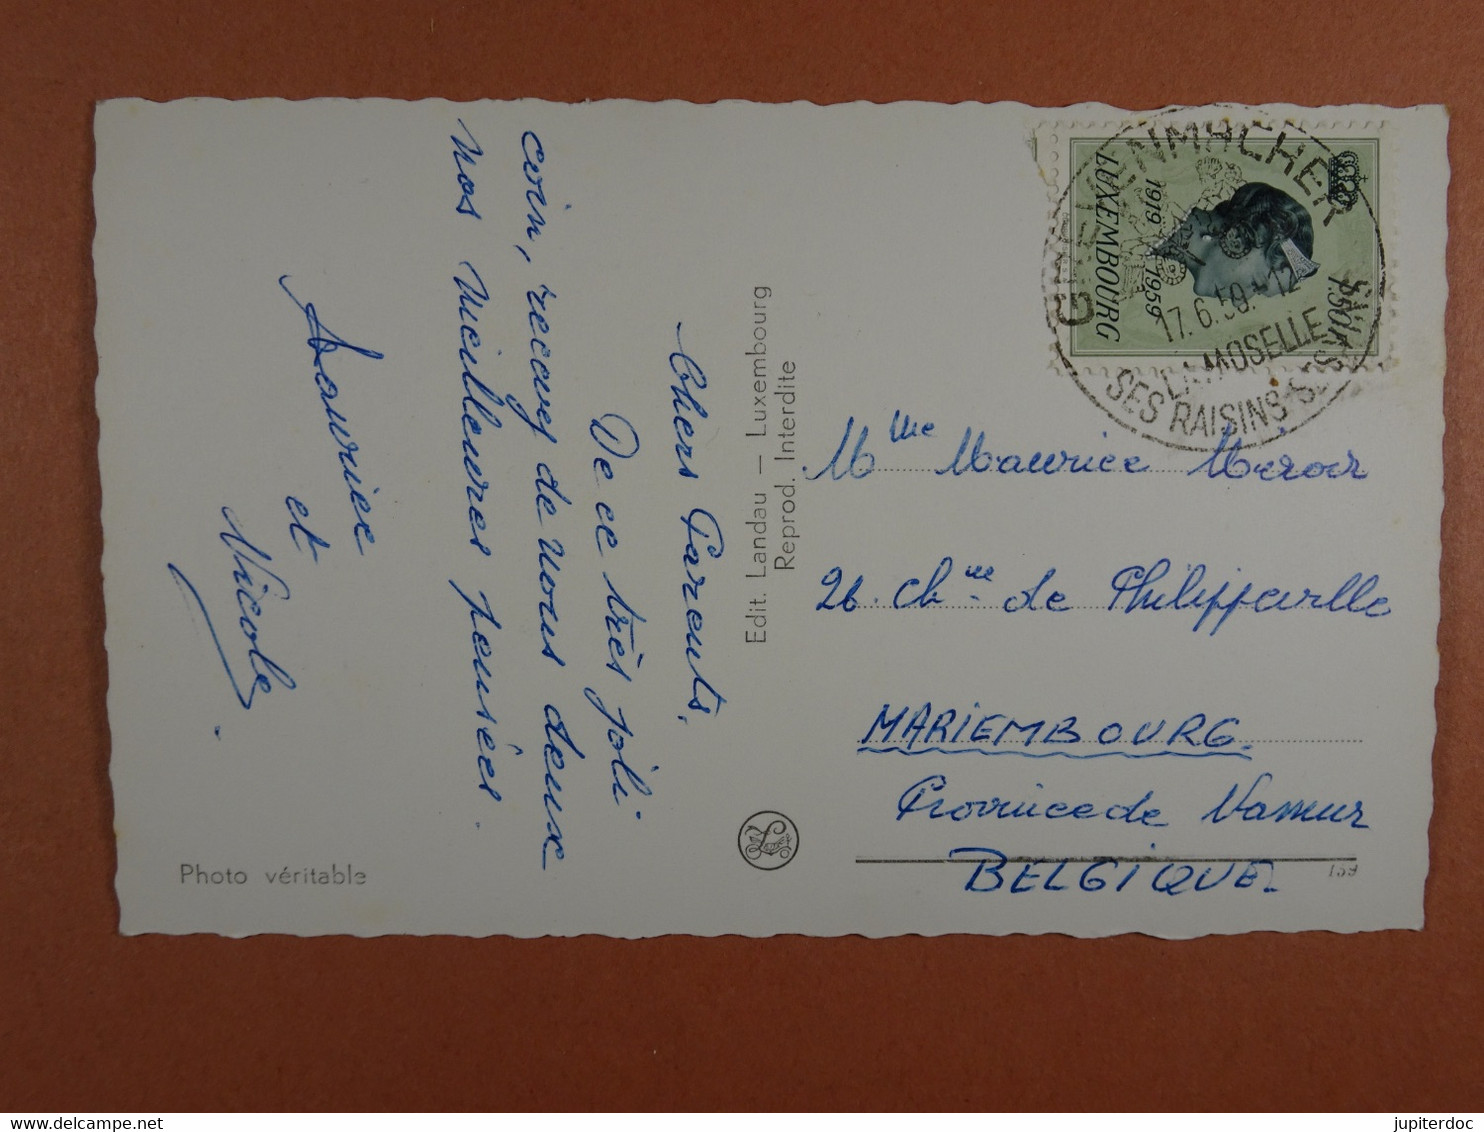 Chers Parents,
De ce très joli
coin, recevez de nous deux
nos meilleures pensées.
Maurice
et
Nicole.
Photo véritable
Edit. Landau — Luxembourg
Reprod. Interdite
GREVENMACHER
17.6.59.-12
LA MOSELLE
SES RAISINS-SES
LUXEMBOURG
1919 1959
1.50F
Mme Maurice
26. Chée de Philippeville
MARIEMBOURG.
Province de Namur
BELGIQUE
159
jupiterdoc